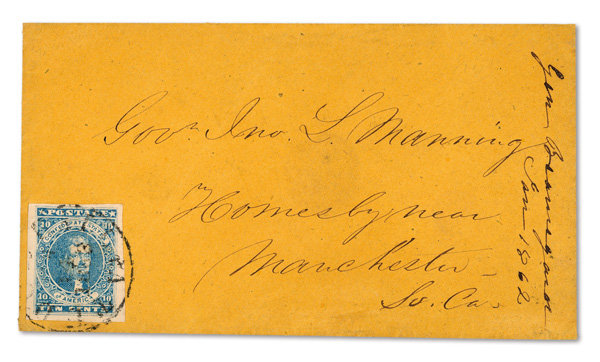 Gov.r Jno. L. Manning
Homesby near
Manchester
So. Ca.
Gen Beauregard
Jan 1862
POSTAGE
10 10
CONFEDERATE STATES
OF AMERICA
10 10
TEN CENTS